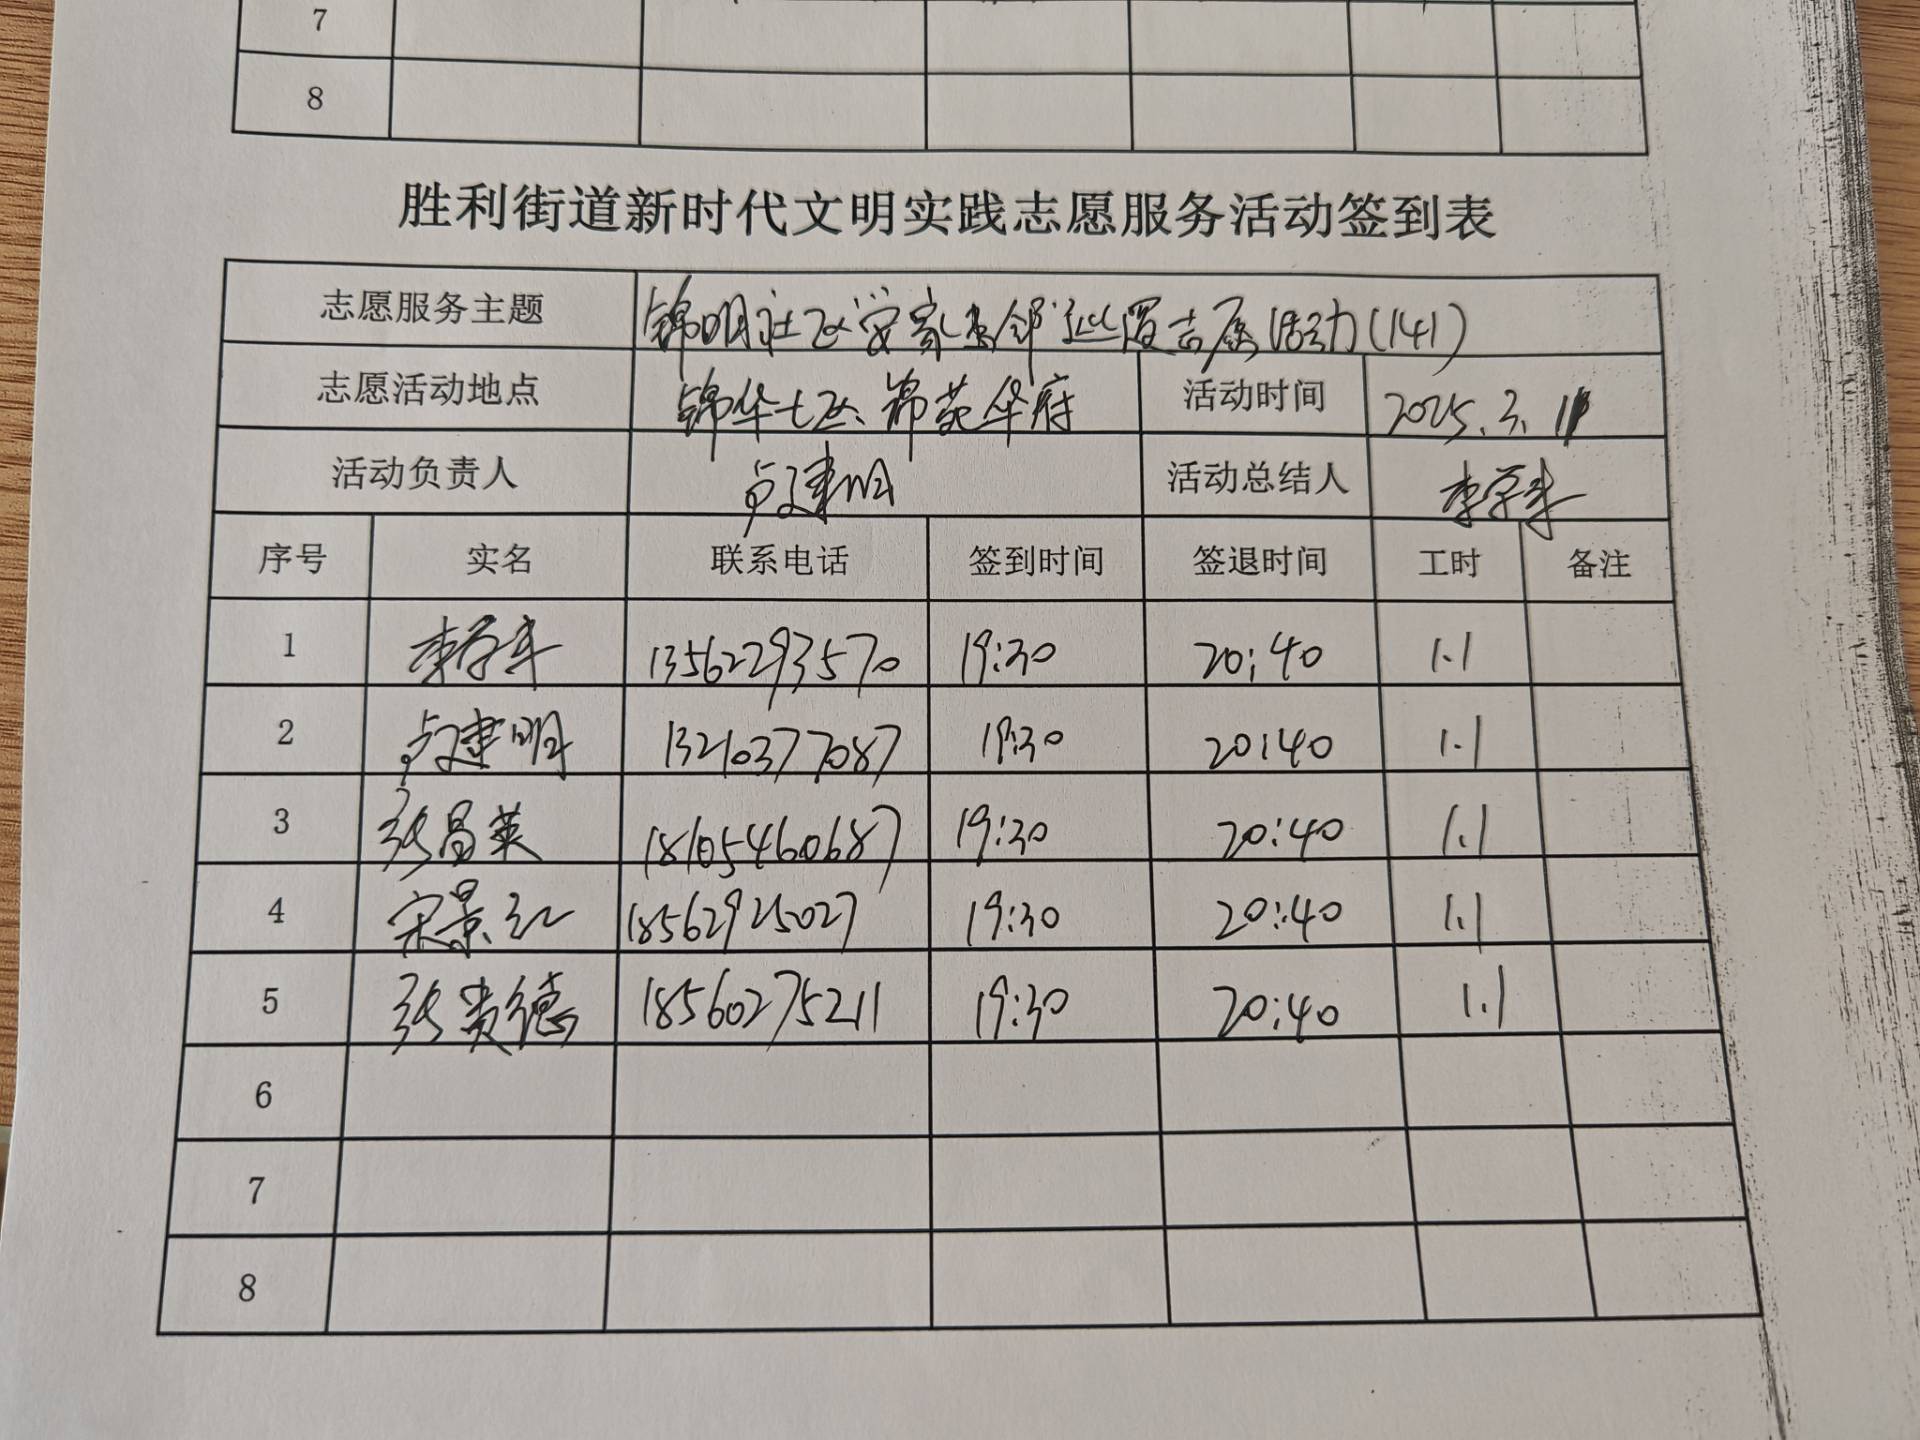 7
8
胜利街道新时代文明实践志愿服务活动签到表
志愿服务主题 锦明社区"安家 邻"巡 志愿活动(141)
志愿活动地点 锦华七区、锦苑华府 活动时间 2025.3.11
活动负责人 卢建明 活动总结人 李
序号 实名 联系电话 签到时间 签退时间 工时 备注
1 李 13562293570 19:30 20:40 1.1
2 卢建明 13210377087 19:30 20:40 1.1
3 张昌英 18105460687 19:30 20:40 1.1
4 宋景红 18562925027 19:30 20:40 1.1
5 张贵德 18560275211 19:30 20:40 1.1
6
7
8